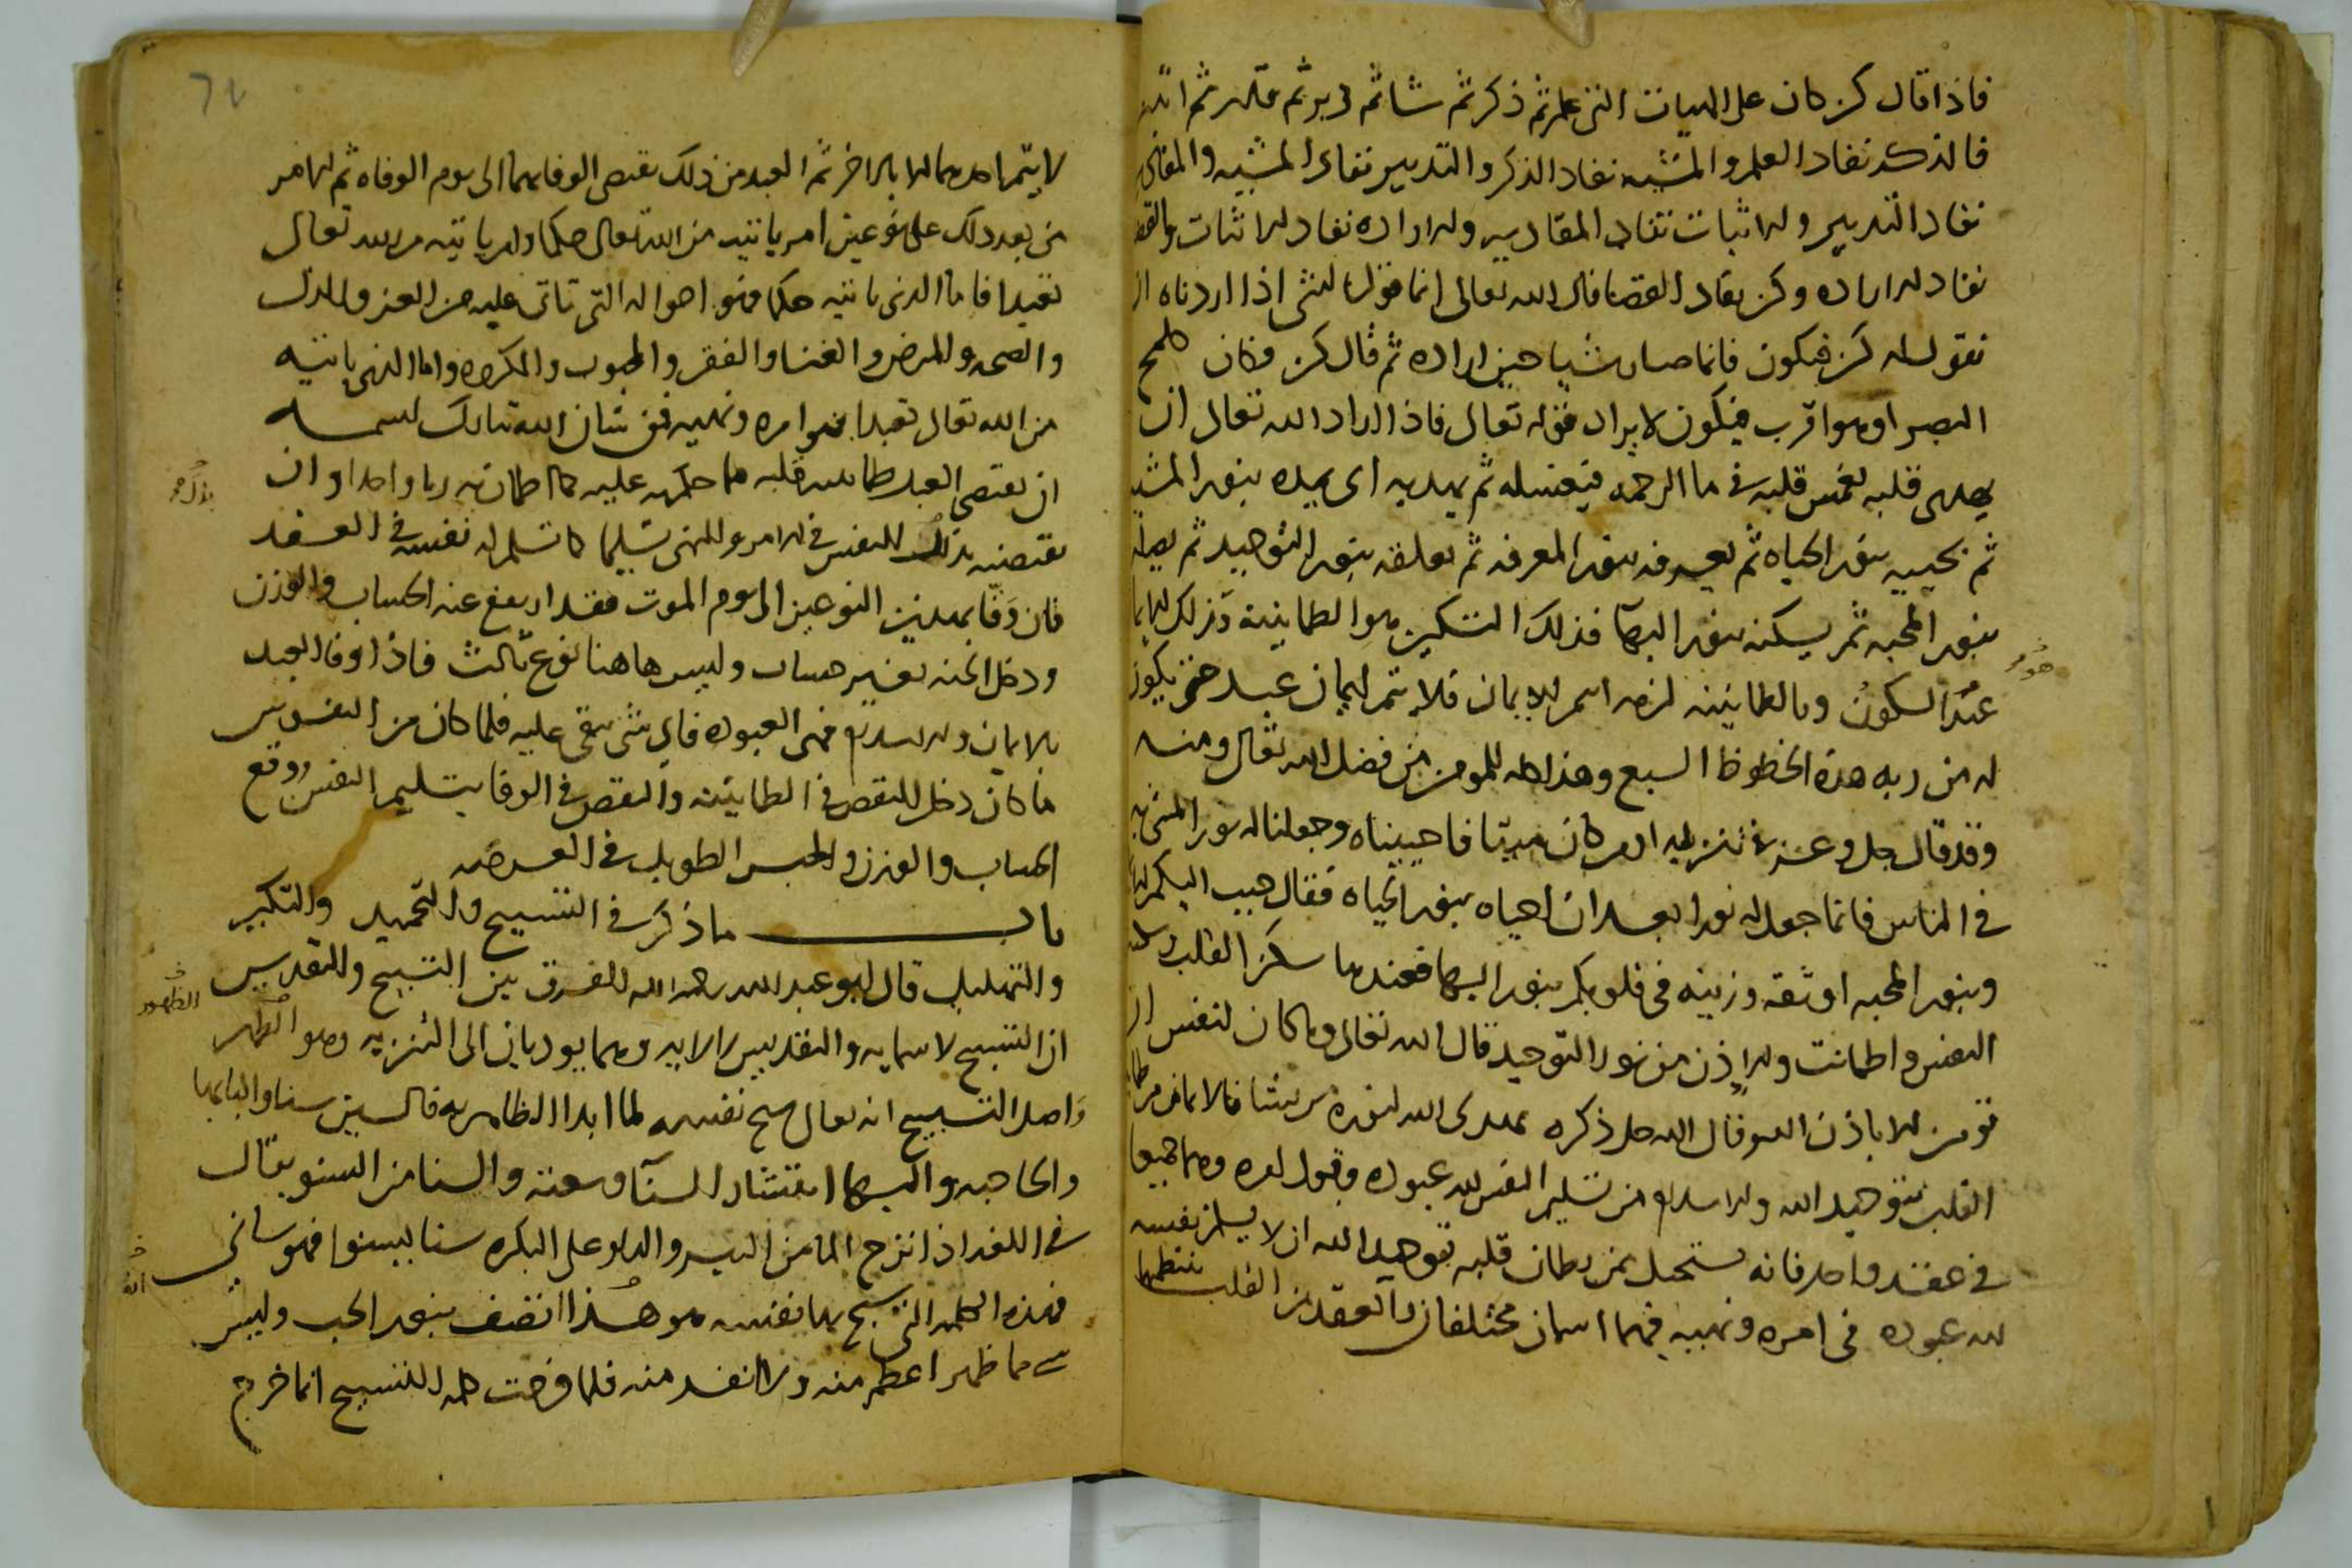 فاذا قال كن كان على الهيات التي علم ثم ذكر ثم شا ثم دبر ثم قدر ثم اثبت
فالذكر نفاد العلم والمشيه نفاد الذكر والتدبير نفاد المشيه والمقادير
نفاد التدبير والاثبات نفاد المقادير والاراده نفاد الاثبات والقضا
نفاد الاراده وكن نفاد القضا قال الله تعالى انما قولنا لشي اذا اردناه ان
نقول له كن فيكون فانما صار شيا حين اراده ثم قال كن فكان كلمح
البصر او هو اقرب فيكون لا يراد قوله تعالى فاذا اراد الله تعالى ان
يهدي قلبه يغمس قلبه في ما الرحمه فيغسله ثم يهديه اى يميده بنور المشيه
ثم يحييه بنور الحياه ثم يعرفه بنور المعرفه ثم يعلقه بنور التوحيد ثم يصله
بنور المحبه ثم يسكنه بنور البها فذلك التسكين هو الطمانينة وذلك الايمان
عند السكون وبالطمانينه لزمه اسم الايمان فلا يتم ايمان عبد حتى يكون
له من ربه هذه الحظوظ السبع وهذا كله للمومن من فضل الله تعالى ومنه
وقد قال جل وعز في تنزيله اومن كان ميتا فاحييناه وجعلنا له نورا يمشي به
في الناس فانما جعل له نورا بعد ان احياه بنور الحياه فقال حبب اليكم الايمان
وبنور المحبه اوثقه وزينه في قلوبكم بنور البها فعندها سكن القلب وسكنت
النفس واطمانت والاذن من نور التوحيد قال الله تعالى وما كان لنفس ان
تومن الا باذن الله وقال الله جل ذكره يهدى الله لنوره من يشا فالايمان من طمانينة
القلب بتوحيد الله والاسلام من تسليم النفس لله عبوده وقبول امره وهما جميعا
في عقد واحد فانه يستحيل لمن يطمان قلبه بتوحيد الله ان لا يسلم نفسه
لله عبوده في امره ونهيه فهما اسمان مختلفان والعقد من القلب ينتظمهما
هو
لا يتم احدهما الا بالاخر ثم العبد من ذلك يقتضي الوفا بهما الى يوم الوفاه ثم الامر
من بعد ذلك على نوعين امر ياتيه من الله تعالى حكما وامر ياتيه من الله تعالى
تعبدا فاما الذي ياتيه حكما فهو احواله التي تاتي عليه من العز والذل
والصحه والمرض والغنا والفقر والمحبوب والمكروه واما الذي ياتيه
من الله تعالى تعبدا فهو امره ونهيه فمن شان الله تبارك اسمه
ان يقتضي العبد طمانينه قلبه بما حكم به عليه كما اطمان به ربا واحدا وان
يقتضيه بذلك النفس في الامر والنهي تسليما كما تسلم له نفسه في العقد
فان وفا بهذين النوعين الى يوم الموت فقد ارتفع عنه الحساب والوزن
ودخل الجنه بغير حساب وليس هاهنا نوع ثالث فاذا وفا العبد
بالايمان والاسلام فهى العبوده فاي شي يبقى عليه فلما كان من النفوس
ما كان دخل النقص في الطمانينه والنقص في الوفا بتسليم النفس ووقع
الحساب والوزن والحبس الطويل في العرصه
باب ما ذكر في التسبيح والتحميد والتكبير
والتهليل قال ابو عبد الله رحمه الله الفرق بين التسبيح والتقديس
ان التسبيح لاسمايه والتقديس لالايه وهما يوديان الى التنزيه وهو الطهر
واصل التسبيح انه تعالى سبح نفسه لما ابدا الظاهريه فالسين سنا والبا بها
والحا حبه والبها انتشار السنا وسعته والسنا من السنو يقال
في اللغه اذا نزح الما من البير والدلو على البكره سنا يسنوا فهو ساني
فهذه الكلمه التي سبح بها نفسه هو هذا اتصف بنور الحب وليس
شي مما ظهر اعظم منه ولا انفد منه فلما فرضت كلمه التسبيح انما خرج
الظهور